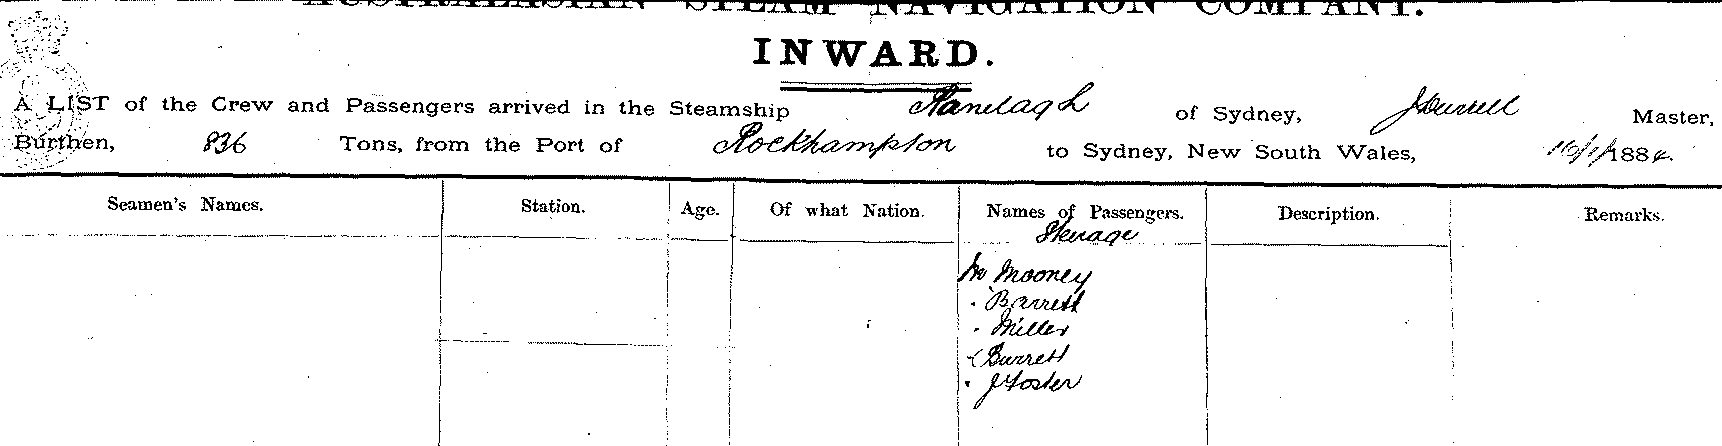 AUSTRALASIAN STEAM NAVIGATION COMPANY.
INWARD.
A LIST of the Crew and Passengers arrived in the Steamship Ranelagh of Sydney, Master,
Burthen, 836 Tons, from the Port of Rockhampton to Sydney, New South Wales, 1884.
Seamen's Names. Station. Age. Of what Nation. Names of Passengers. Description. Remarks.
Steerage
Mr Mooney
" Barrett
" Miller
Burrett
" J Foster